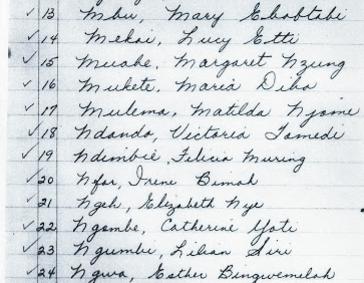 ✓ 13 Mbu, Mary Ebabtabi
✓ 14 Mekai, Lucy Etti
✓ 15 Muabe, Margaret Nzung
✓ 16 Mukete, Maria Diba
✓ 17 Mulema, Matilda Njoime
✓ 18 Ndando, Victoria Tamedi
✓ 19 Ndimbie, Felicia Muring
✓ 20 Nfor, Irene Bimah
✓ 21 Ngeh, Elizabeth Nye
✓ 22 Ngombe, Catherine Yoti
✓ 23 Ngumbi, Lilian Siri
✓ 24 Ngwa, Esther Bingwemelah